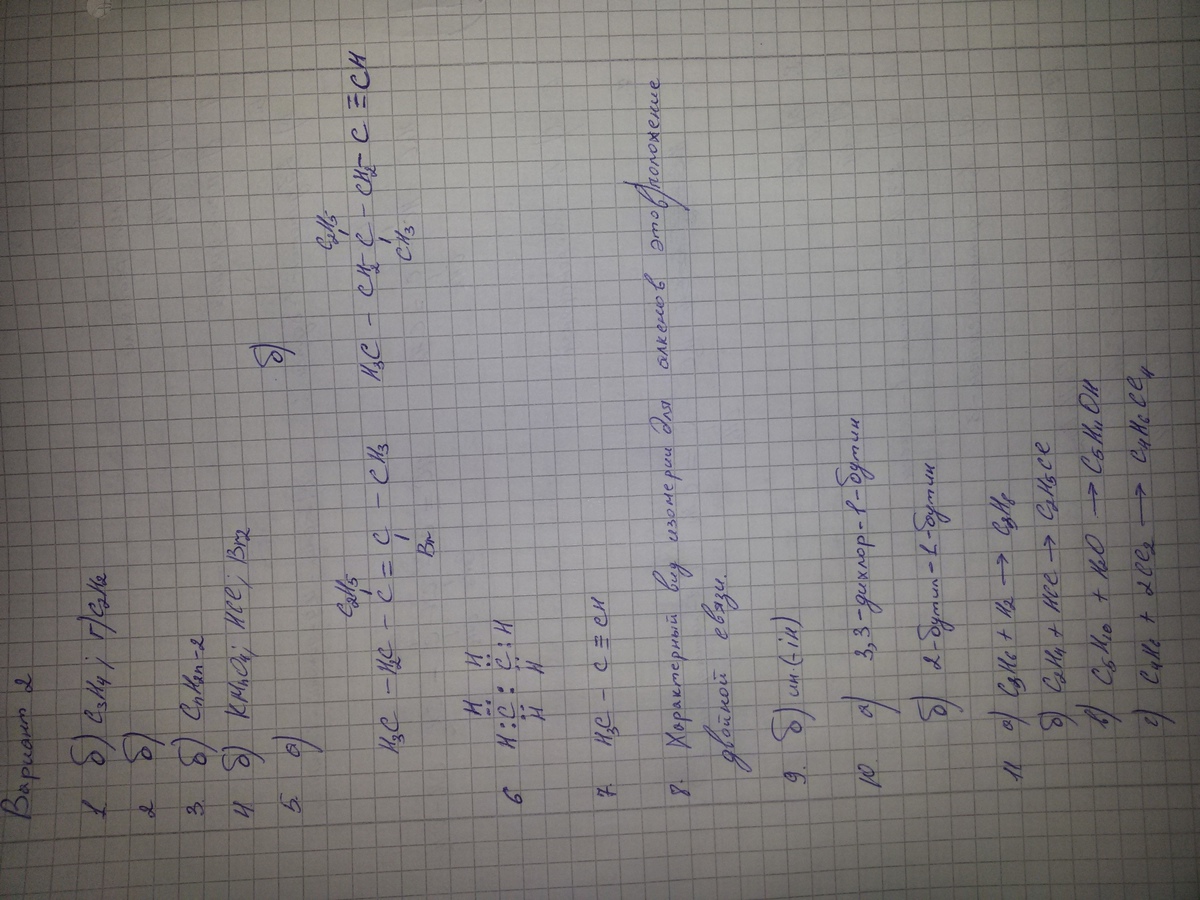 Вариант 2
1 б) C3H4; г) C2H2
2 б)
3. б) CnH2n-2
4 б) KMnO4; HCl; Br2
5. а) б)
C2H5 C2H5
H3C - H2C - C = C - CH3 H3C - CH2 - C - CH2 - C ≡ CH
Br CH3
H H
6 H : C : C : H
H H
7. H3C - C ≡ CH
8. Характерный вид изомерии для алкенов это в) положение
двойной связи.
9. б) ин (-in)
10 а) 3,3-дихлор-1-бутин
б) 2-бутил-1-бутин
11 а) C3H6 + H2 → C3H8
б) C2H4 + HCl → C2H5Cl
в) C5H10 + H2O → C5H11OH
г) C4H6 + 2Cl2 → C4H6Cl4